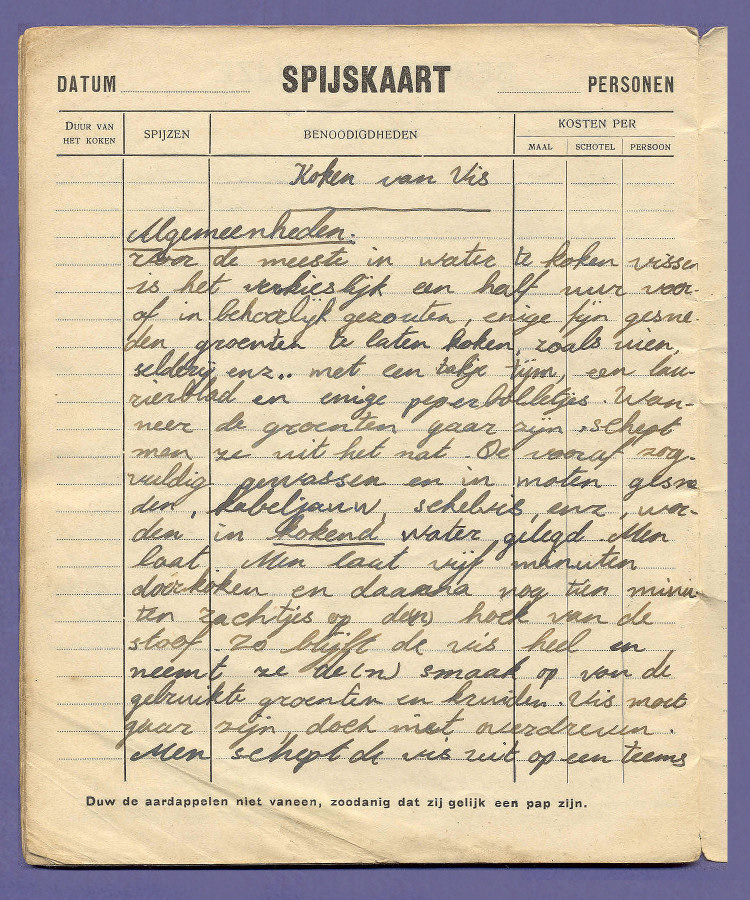 DATUM SPIJSKAART PERSONEN
DUUR VAN HET KOKEN SPIJZEN BENOODIGDHEDEN KOSTEN PER
MAAL SCHOTEL PERSOON
Koken van Vis
Algemeenheden.
voor de meeste in water te koken vissen
is het verkieslijk een half uur voor-
of in behoorlijk gezouten, enige fijn gesne-
den groenten te laten koken, zoals uien,
selderij enz.. met een takje tijm, een lau-
rierblad en enige peperbolletjes. Wan-
neer de groenten gaar zijn, schept
men ze uit het nat. De vooraf zorg-
vuldig gewassen en in moten gesne
den, kabeljauw, schelvis, enz, wor-
den in kokend water gelegd. Men
laat. Men laat vijf minuten
doorkoken en daarna nog tien minu-
ten zachtjes op de(n) hoek van de
stoof. Zo blijft de vis heel en
neemt ze de(n) smaak op van de
gebruikte groenten en kruiden. Vis moet
gaar zijn, doch niet overdreven.
Men schept de vis uit op een teems
Duw de aardappelen niet vaneen, zoodanig dat zij gelijk een pap zijn.